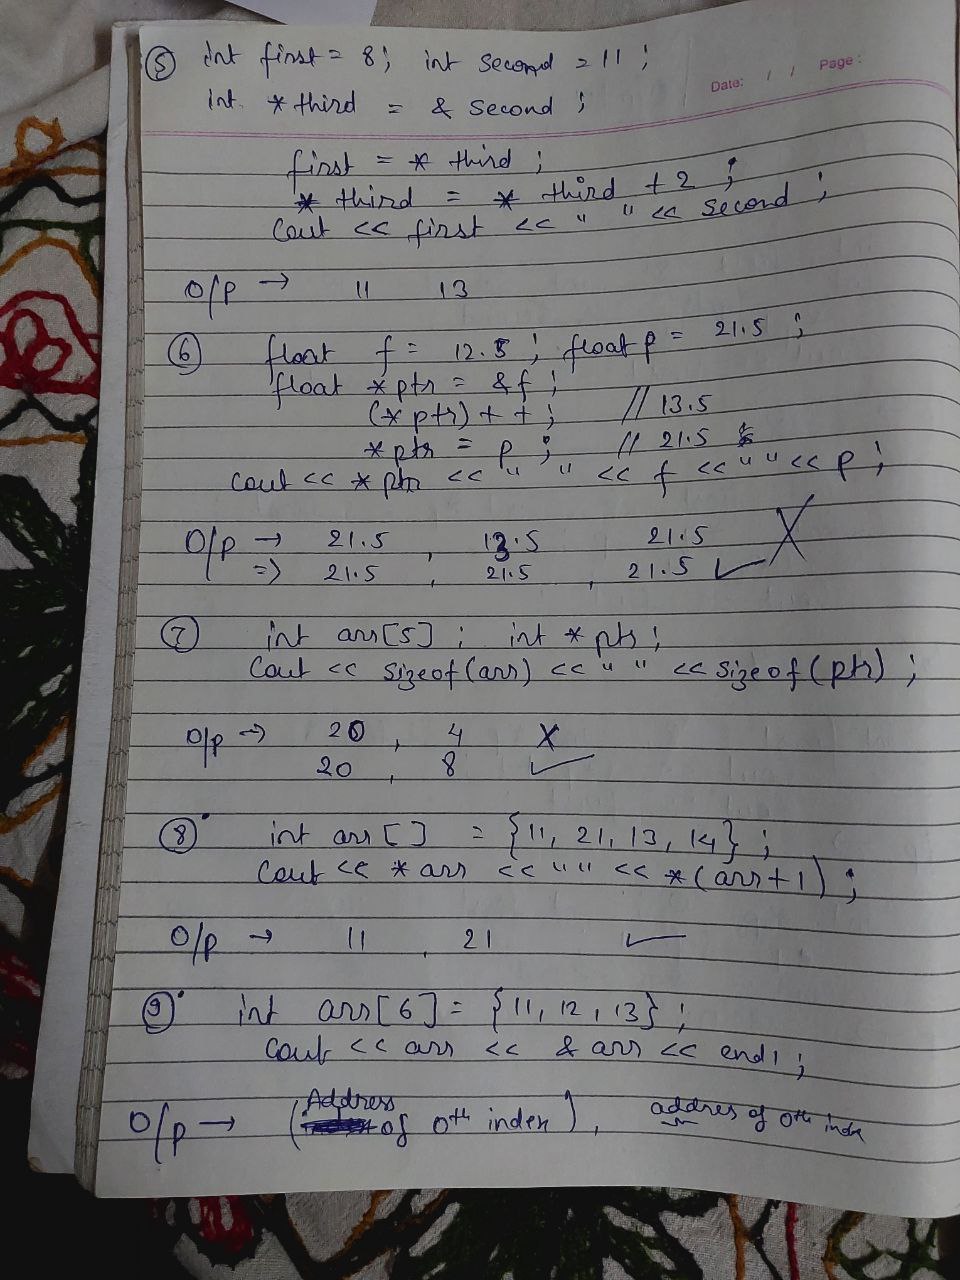 ⑤ int first = 8; int second = 11;
Date: / / Page:
int *third = & second;
first = * third;
* third = * third + 2;
Cout << first << " " << second;
O/p → 11 13
⑥ float f = 12.5; float p = 21.5;
float *ptr = &f;
(*ptr)++; // 13.5
*ptr = p; // 21.5
Cout << *ptr << " " << f << " " << p;
O/p → 21.5, 13.5 21.5 X
=> 21.5, 21.5, 21.5 ✓
⑦ int arr[5]; int *ptr;
Cout << sizeof(arr) << " " << sizeof(ptr);
O/p → 20, 4 X
20, 8 ✓
⑧ int arr[] = {11, 21, 13, 14};
Cout << *arr << " " << *(arr+1);
O/p → 11, 21 ✓
⑨ int arr[6] = {11, 12, 13};
Cout << arr << &arr << endl;
O/p → (Address of 0th index), addres of 0th inde